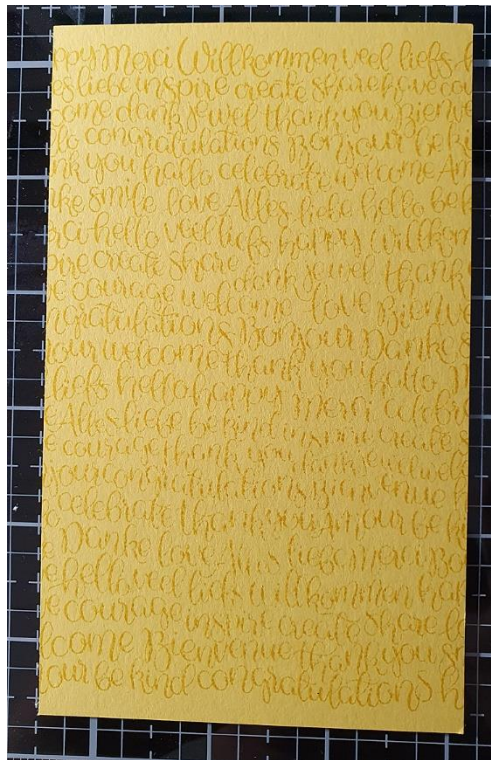 ppy Merci Willkommen veel liefs
es liebe inspire create share have cou
ome dank je wel thank you Bienve
lo congratulations Bonjour be ki
nk you hallo celebrate welcome Am
ke smile love Alles liebe hello be k
rci hello veel liefs happy Willkom
pire create share dank je wel thank
e courage welcome love Bienve
ngratulations Bonjour Danke s
our welcome thank you hallo
liefs hello happy Merci celebr
e Alles liebe be kind inspire create s
e courage thank you dank je wel wel
jour congratulations Bienvenue h
e celebrate thank you Amour be ki
e Danke love Alles liebe merci Bo
e hello veel liefs willkommen ha
ve courage inspire create share lo
lcome Bienvenue thank you sm
our be kind congratulations h